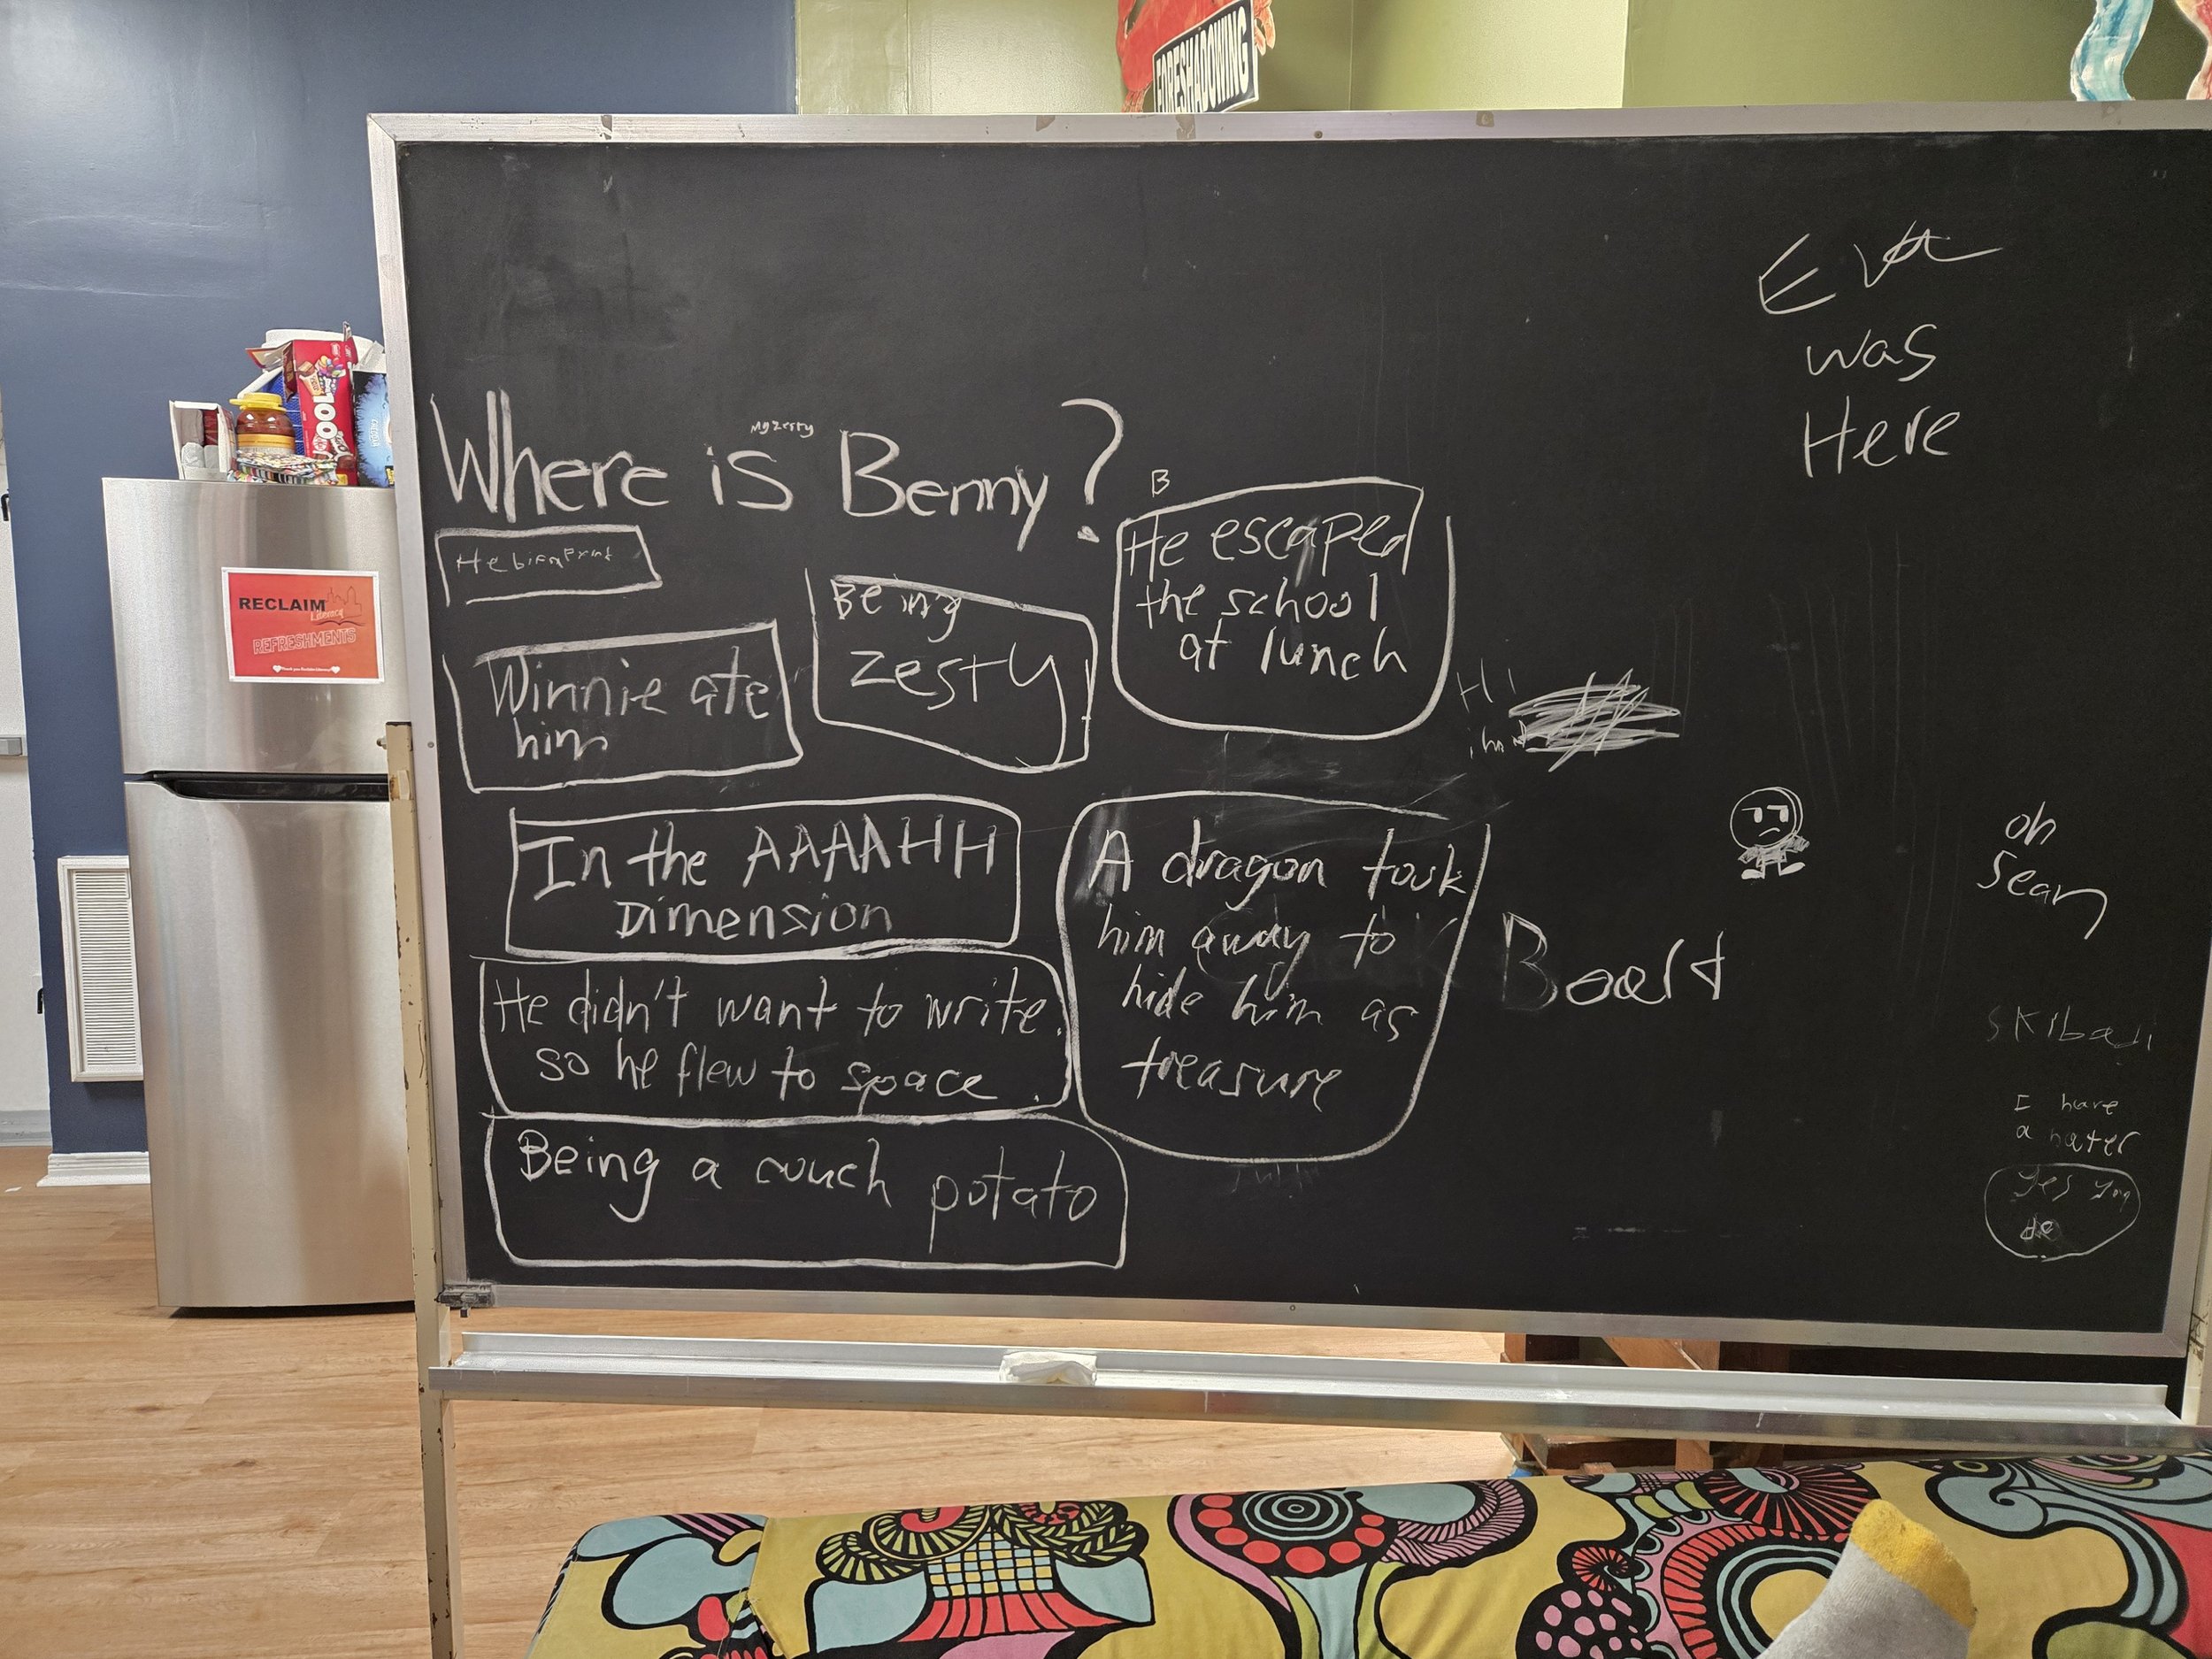 FORESHADOWING
Eva
was
Here
My zesty
Where is Benny?
B
He escaped
the school
at lunch
He
Being
zesty
Winnie ate
him
Hi
In the AAAAHH
Dimension
A dragon took
him away to
hide him as
treasure
oh
Sean
Board
He didn't want to write.
so he flew to space.
I have
a hater
Yes you
do
Being a couch potato
RECLAIM
Literacy
REFRESHMENTS
100